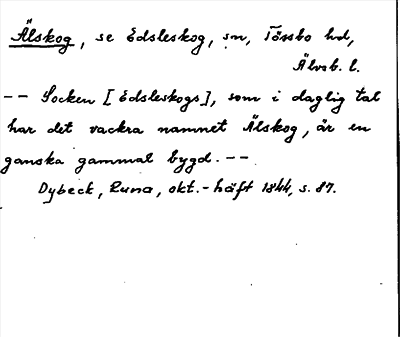 Älskog, se Edsleskog, sn, Tössbo hd,
Älvsb. l.
-- Socken [Edsleskogs], som i daglig tal
har det vackra namnet Älskog, är en
ganska gammal bygd. --
Dybeck, Runa, okt.-häft 1844, s. 87.